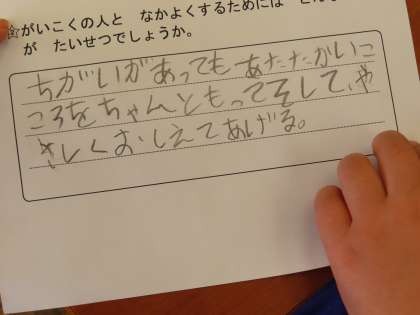 がいこくの人と なかよくするためには
が たいせつでしょうか。
ちがいがあってもあたたかいこ
ころをちゃんともってそして、や
さしくおしえてあげる。